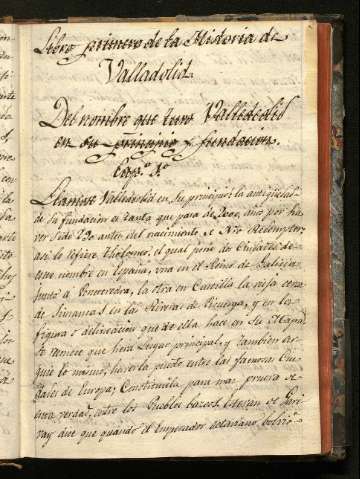 Libro primero de la Historia de
Valladolid.
Del nombre que tuvo Vallidolid
en su principio y fundacion.
Cap.º 1º
Llamose Valladolid en su principio; la antiguedad
de la fundacion es tanta que pasa de años por ha
ver sido antes del nacimiento de Nro Redemptor,
asi lo refiere Tholomeo, el qual pone dos Ciudades de
este nombre en España, una en el Reino de Galicia
junto á Pontevedra, la otra en Castilla la vieja cerca
de Simancas en las Riveras de Pisuerga, y en la
figura o delineacion que de ella hace en su Mapa
se conoce que hera Lugar principal, y tambien ar
guie lo mismo, haverla puesto entre las famosas Ciu
dades de Europa; para mas prueba de
esta verdad, entre los Pueblos Estevan de Gari
vay dice que quando el Emperador octaviano bolvio